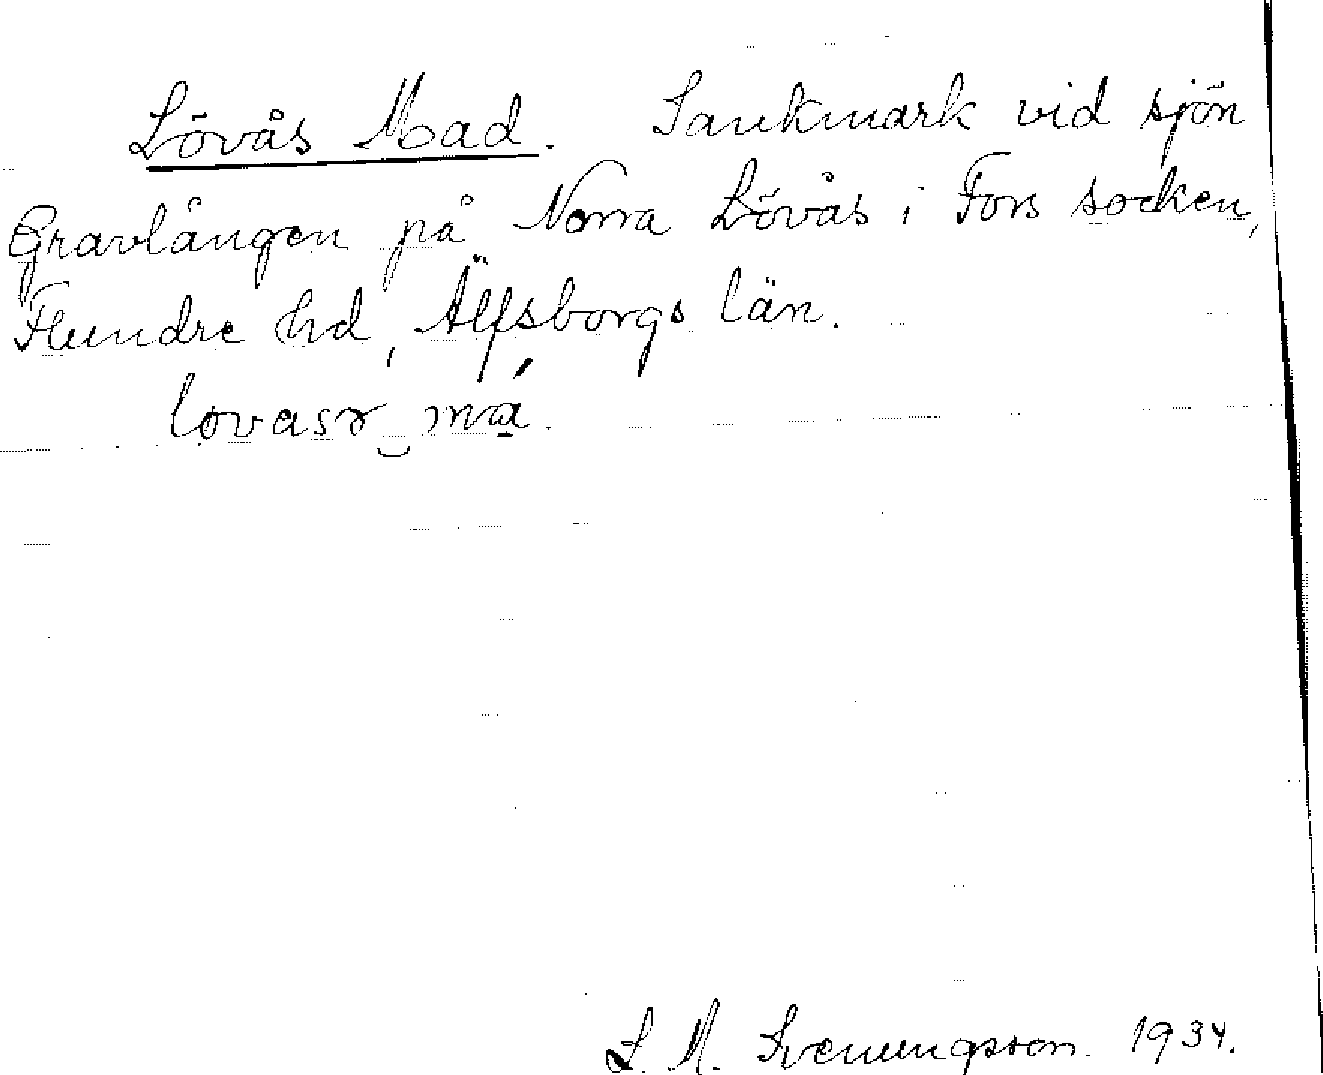 Lövås Mad. Sankmark vid sjön
Gravlången på Norra Lövås i Fors socken,
Flundre hd, Älfsborgs län.
lovasr má.
S. M. Svenungsson. 1934.